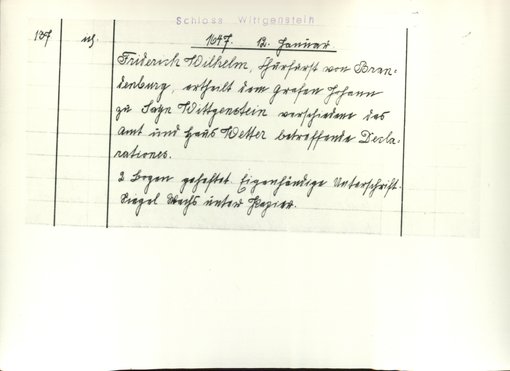 Schloss Wittgenstein
137 1647. 12. Januar
Friderich Wilhelm, Churfürst von Bran-
denburg, ertheilt dem Grafen Johann
zu Sayn Wittgenstein verschiedene das
Amt und Haus Wetter betreffende Decla-
rationes.
2 Bogen geheftet. Eigenhändige Unterschrift.
Siegel Wachs unter Papier.